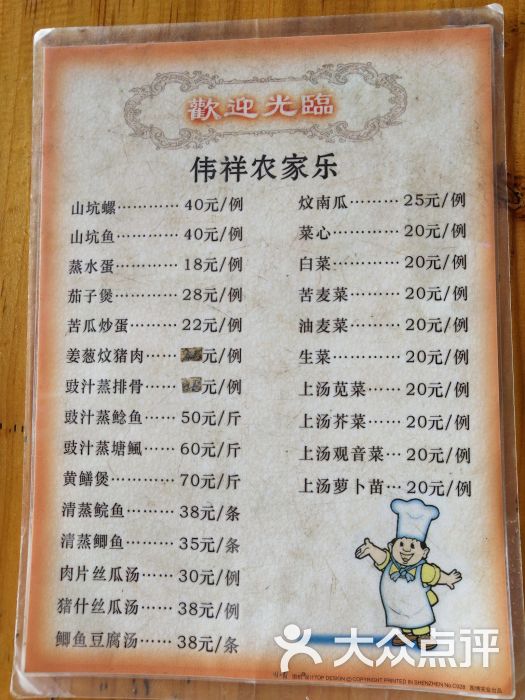 歡迎光臨
伟祥农家乐
山坑螺············40元/例
山坑鱼············40元/例
蒸水蛋············18元/例
茄子煲············28元/例
苦瓜炒蛋·········22元/例
姜葱炆猪肉······元/例
豉汁蒸排骨······元/例
豉汁蒸鲶鱼······50元/斤
豉汁蒸塘鲺······60元/斤
黄鳝煲············70元/斤
清蒸鲩鱼·········38元/条
清蒸鲫鱼·········35元/条
肉片丝瓜汤······30元/例
猪什丝瓜汤······38元/例
鲫鱼豆腐汤······38元/条
炆南瓜·········25元/例
菜心············20元/例
白菜············20元/例
苦麦菜·········20元/例
油麦菜·········20元/例
生菜············20元/例
上汤苋菜······20元/例
上汤芥菜······20元/例
上汤观音菜···20元/例
上汤萝卜苗···20元/例
大众点评
TOP DESIGN © COPYRIGHT PRINTED IN SHENZHEN No.C028